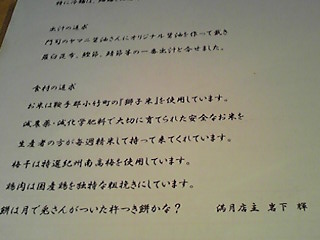 出汁の追求
門司のヤマニ醤油さんにオリジナル醤油を作って戴き
羅臼昆布、鰹節、鯖節等の一番出汁と合せました。
食材の追求
お米は鞍手郡小竹町の『獅子米』を使用しています。
減農薬・減化学肥料で大切に育てられた安全なお米を
生産者の方が毎週精米して持って来てくれています。
梅干は特選紀州南高梅を使用しています。
鶏肉は国産鶏を独特な粗挽きにしています。
餅は月で兎さんがついた杵つき餅かな? 満月店主 岩下 輝